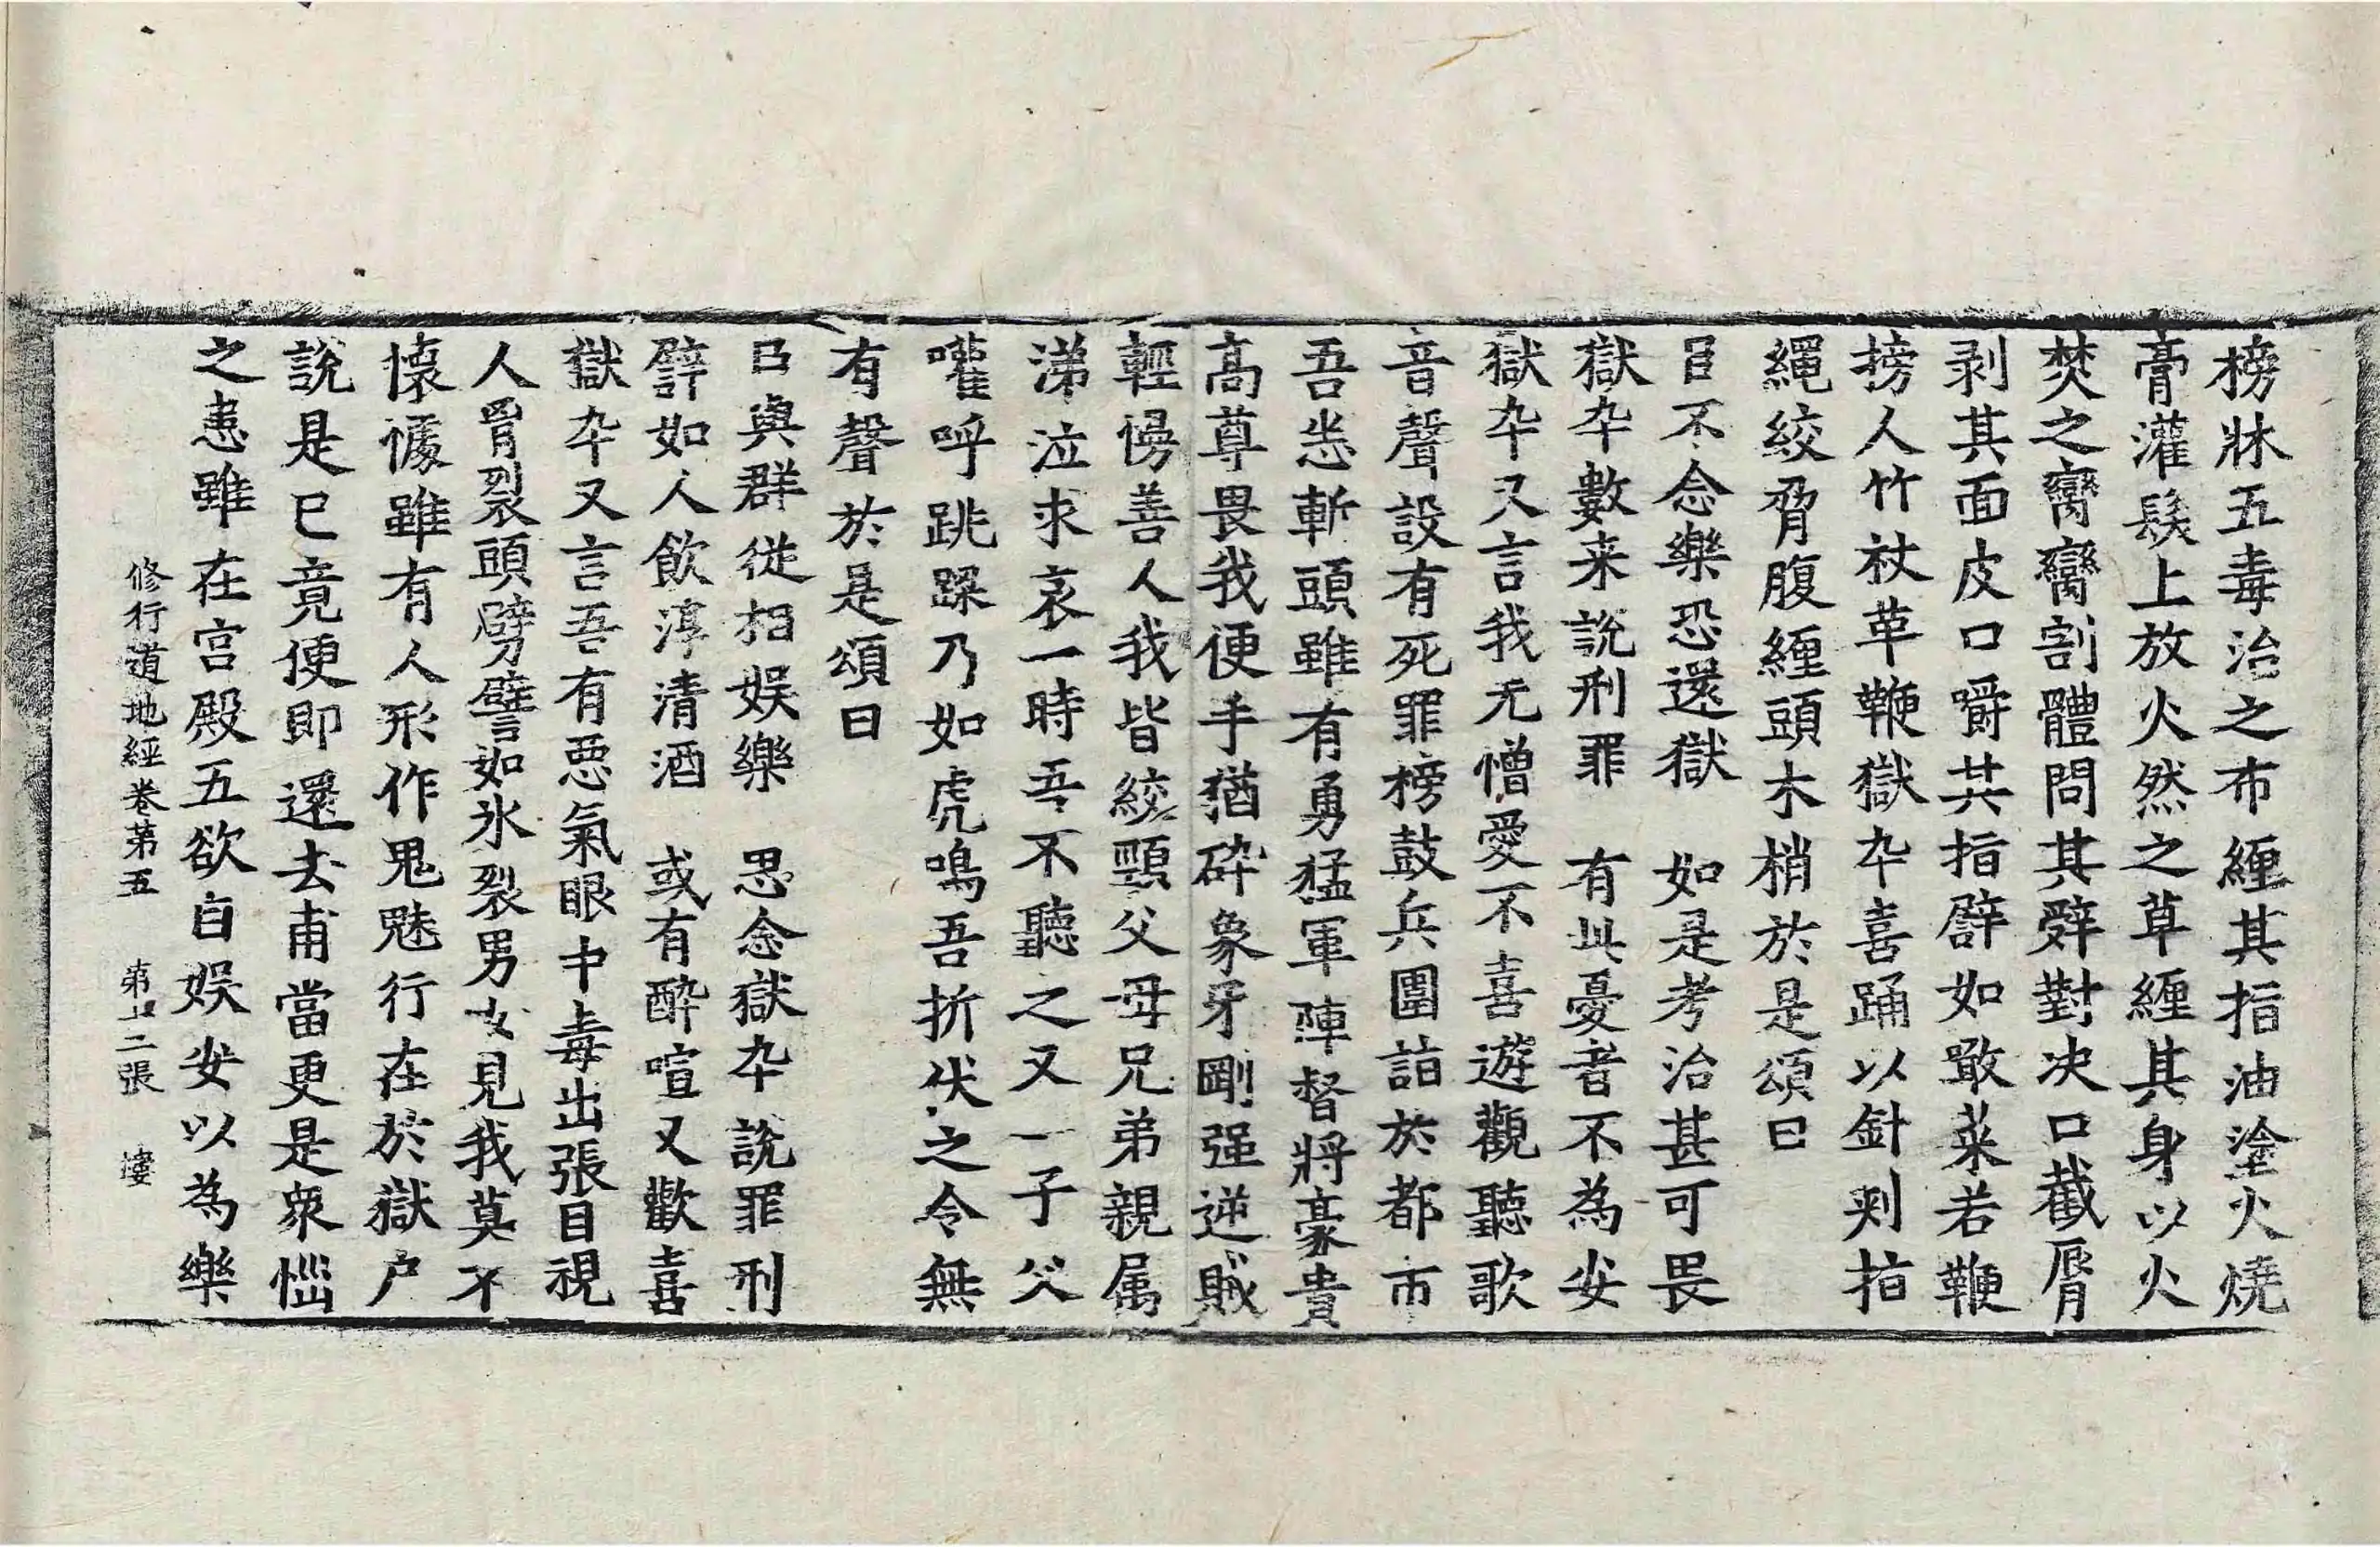 榜牀五毒治之布纏其指油塗火燒
膏灌髮上放火然之草纏其身以火
焚之臠臠割體問其辭對決口截脣
剥其面皮口嚼其指辟如噉菜若鞭
搒人竹杖革鞭獄卒喜踊以針刺指
繩絞脅腹纏頭木梢於是頌曰
目不念樂恐還獄　如是考治甚可畏
獄卒數来說刑罪　有此憂者不為安
獄卒又言我无憎愛不喜遊觀聽歌
音聲設有死罪榜鼓兵圍詣於都市
吾悉斬頭雖有勇猛軍陣督將豪貴
高尊畏我便手猶碎象牙剛强逆賊
輕慢善人我皆絞頸父母兄弟親属
涕泣求哀一時吾不聽之又一子父
嚾呼跳踝乃如虎鳴吾折伏之令無
有聲於是頌曰
以與群從相娱樂　思念獄卒說罪刑
譬如人飲淳清酒　或有醉喧又歡喜
獄卒又言吾有惡氣眼中毒出張目視
人胷裂頭劈譬如氷裂男女見我莫不
懷懅雖有人形作鬼魅行在於獄户
說是已竟便即還去甫當更是衆惱
之恚雖在宫殿五欲自娱安以為樂
修行道地經卷第五　第十二張　樓